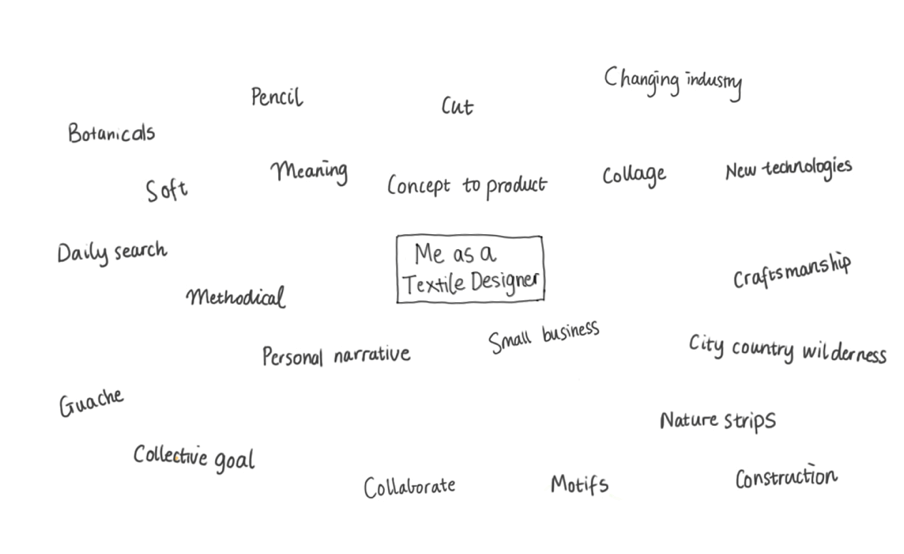 Changing industry
Pencil
Cut
Botanicals
Meaning
Soft
Concept to product
Collage
New technologies
Daily search
Me as a
Textile Designer
Craftsmanship
Methodical
Personal narrative
Small business
City country wilderness
Guache
Nature strips
Collective goal
Collaborate
Motifs
Construction